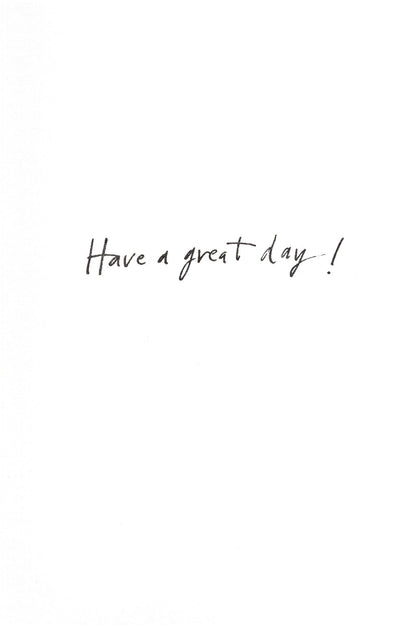 Have a great day!